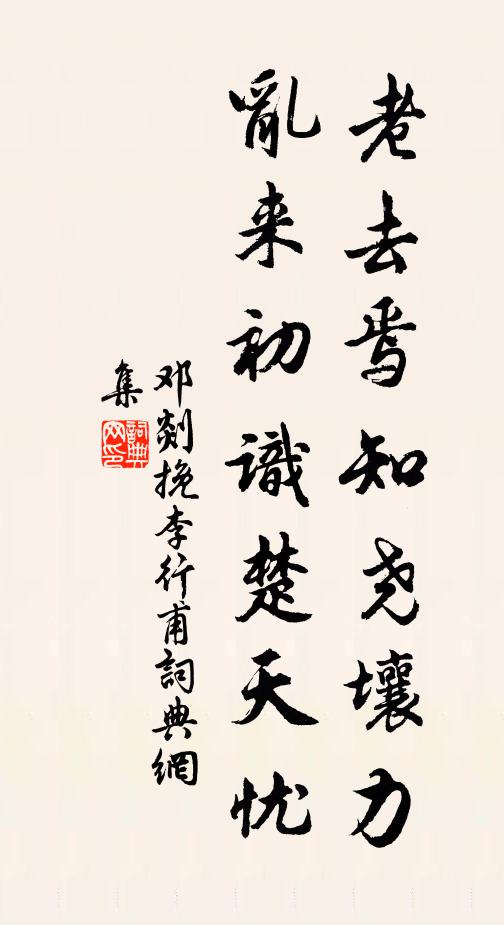 老去焉知尧壤力
亂来初識楚天忧
邓剡挽李行甫詞典網
集
詞典网印